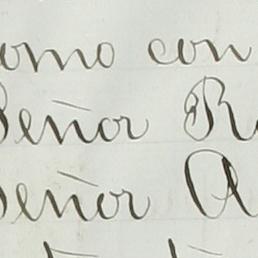 como con
Señor R
Señor A